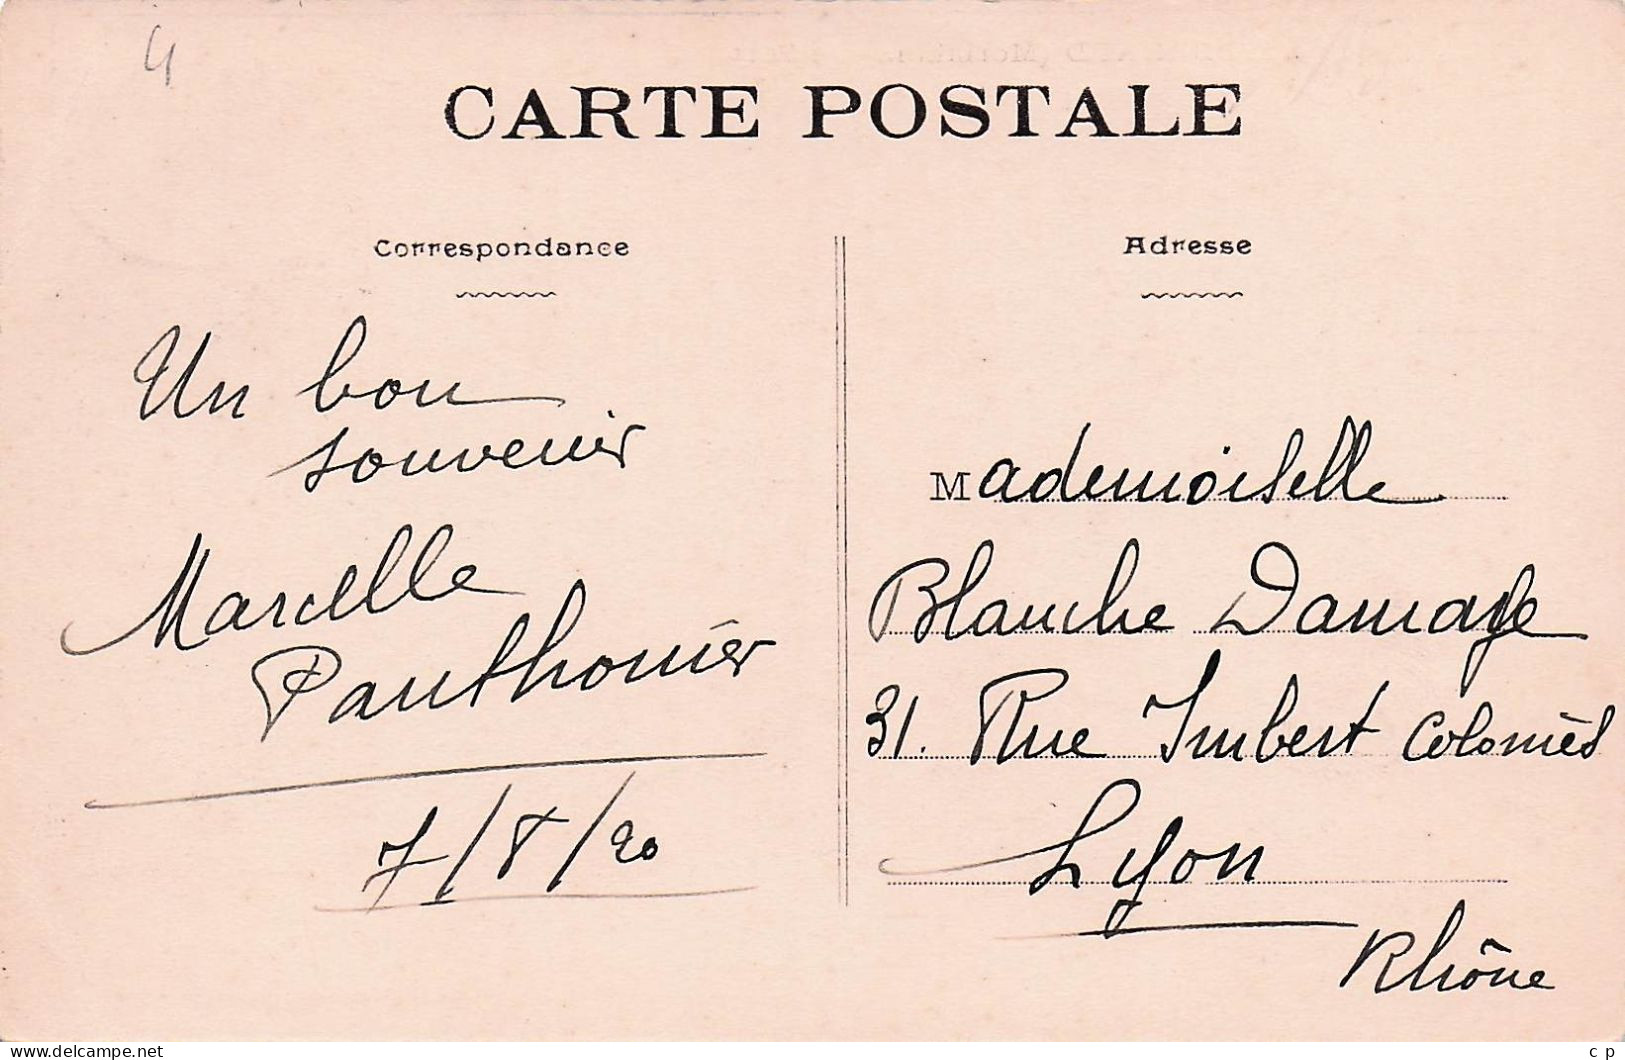 4
CARTE POSTALE
Correspondance
Un bon
souvenir
Marcelle
Panthonier
7/8/20
Adresse
Mademoiselle
Blanche Damage
31. Rue Imbert Colomès
Lyon
Rhône
www.delcampe.net
c p